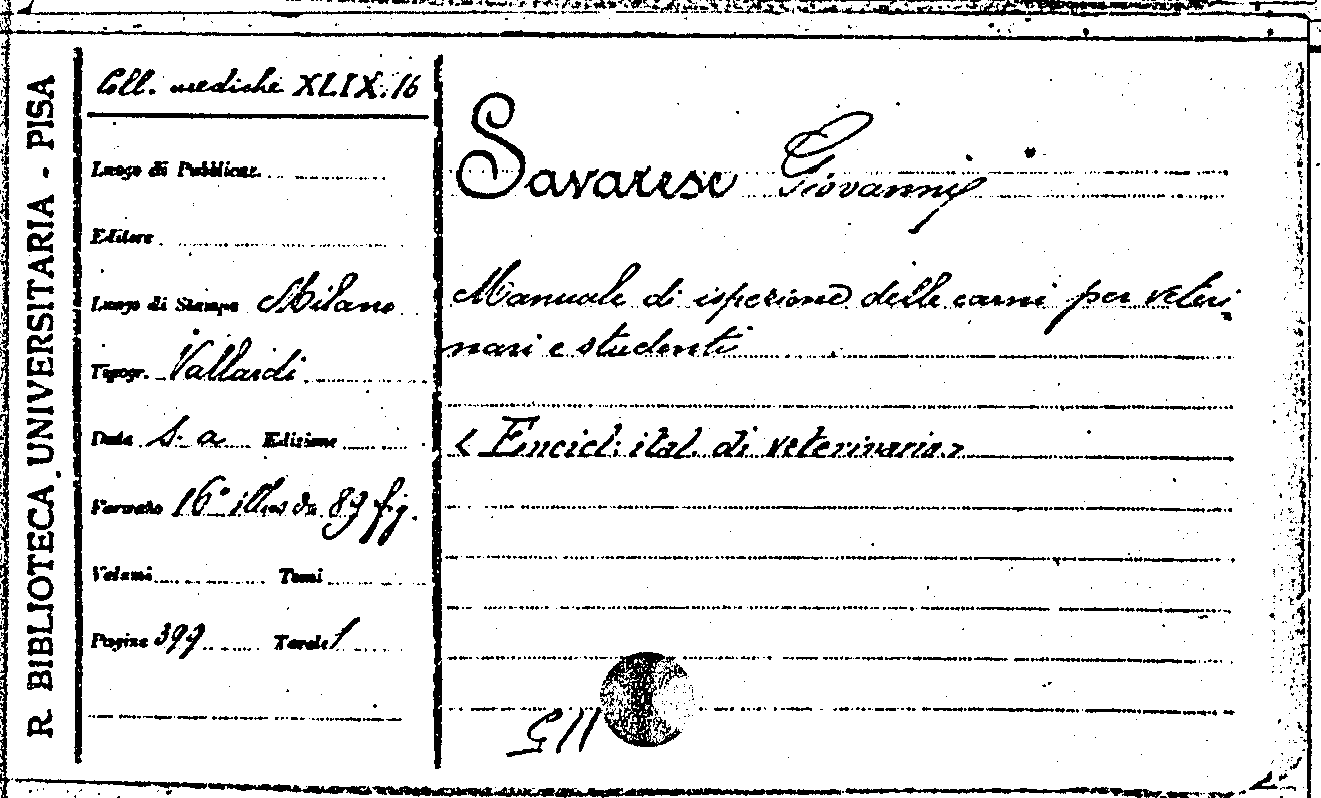 R. BIBLIOTECA UNIVERSITARIA - PISA
Coll. mediche XLIX.16
Luogo di Pubblicaz.
Editore
Luogo di Stampa Milano
Tipogr. Vallardi
Data s. a. Edizione
Formato 16° illus da 89 fig.
Volumi Tomi
Pagine 399 Tavole 1
Savarese Giovanni
Manuale di ispezione delle carni per veteri
nari e studenti
< Encicl. ital. di veterinaria >